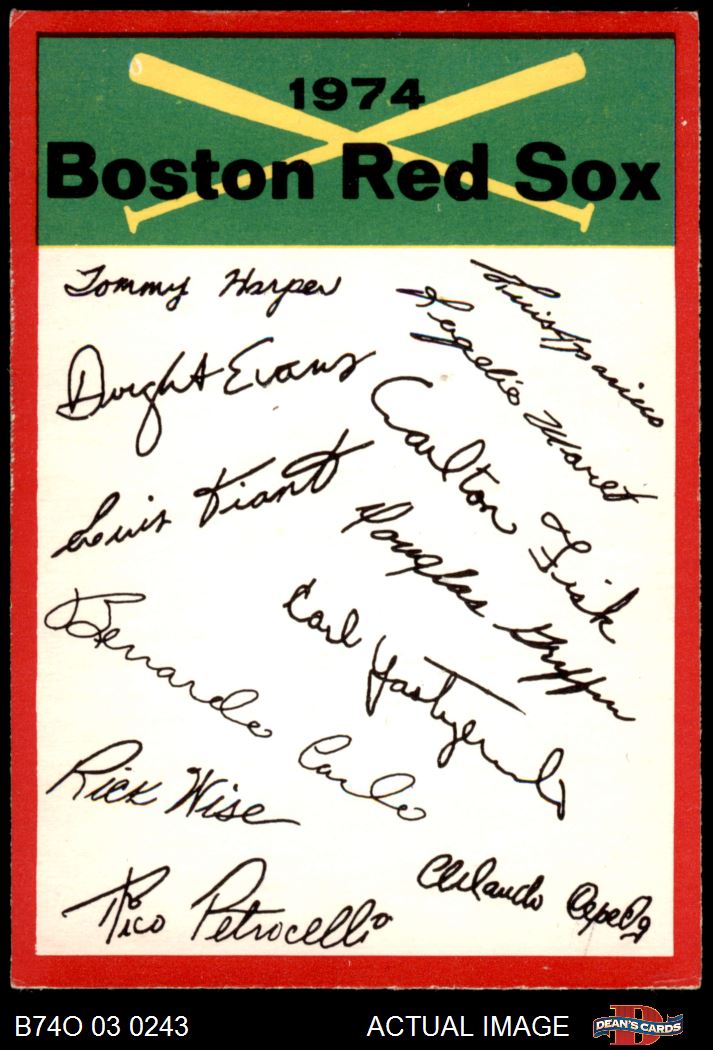 1974
Boston Red Sox
Tommy Harper
Luis Aparicio
Rogelio Moret
Dwight Evans
Carlton Fisk
Luis Tiant
Douglas Griffin
Bernardo Carbo
Carl Yastrzemski
Rick Wise
Orlando Cepeda
Rico Petrocelli
B74O 03 0243
ACTUAL IMAGE
D
DEAN'S CARDS